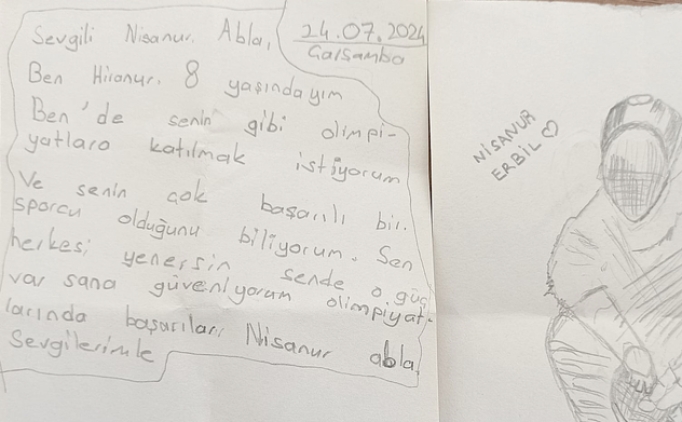 Sevgili Nisanur Abla,
24.07.2024
Çarşamba
Ben Hiranur. 8 yaşındayım
Ben'de senin gibi olimpi-
yatlara katılmak istiyorum
Ve senin çok başarılı bir.
sporcu olduğunu biliyorum. Sen
herkesi yenersin sende o güç
var sana güveniyorum olimpiyat-
larında başarılar Nisanur abla,
Sevgilerimle
NİSANUR
ERBİL